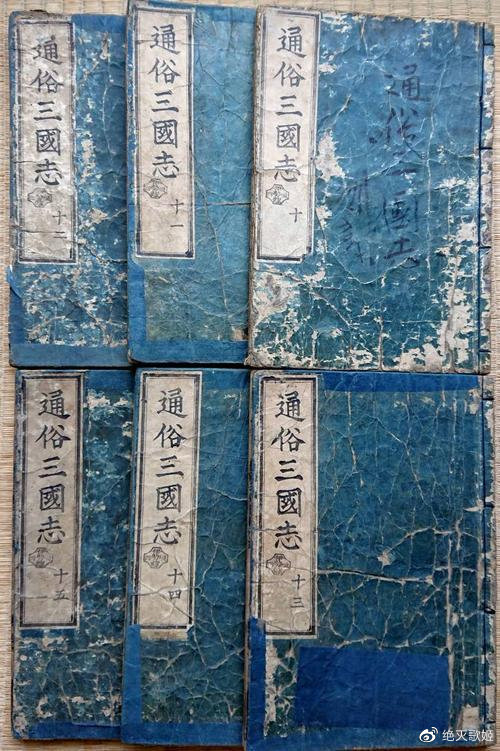 通俗三國志 十
通俗三國志
通俗三國志 十一
通俗三國志 十二
通俗三國志 十三
通俗三國志 十四
通俗三國志 十五
绝灭歌姬